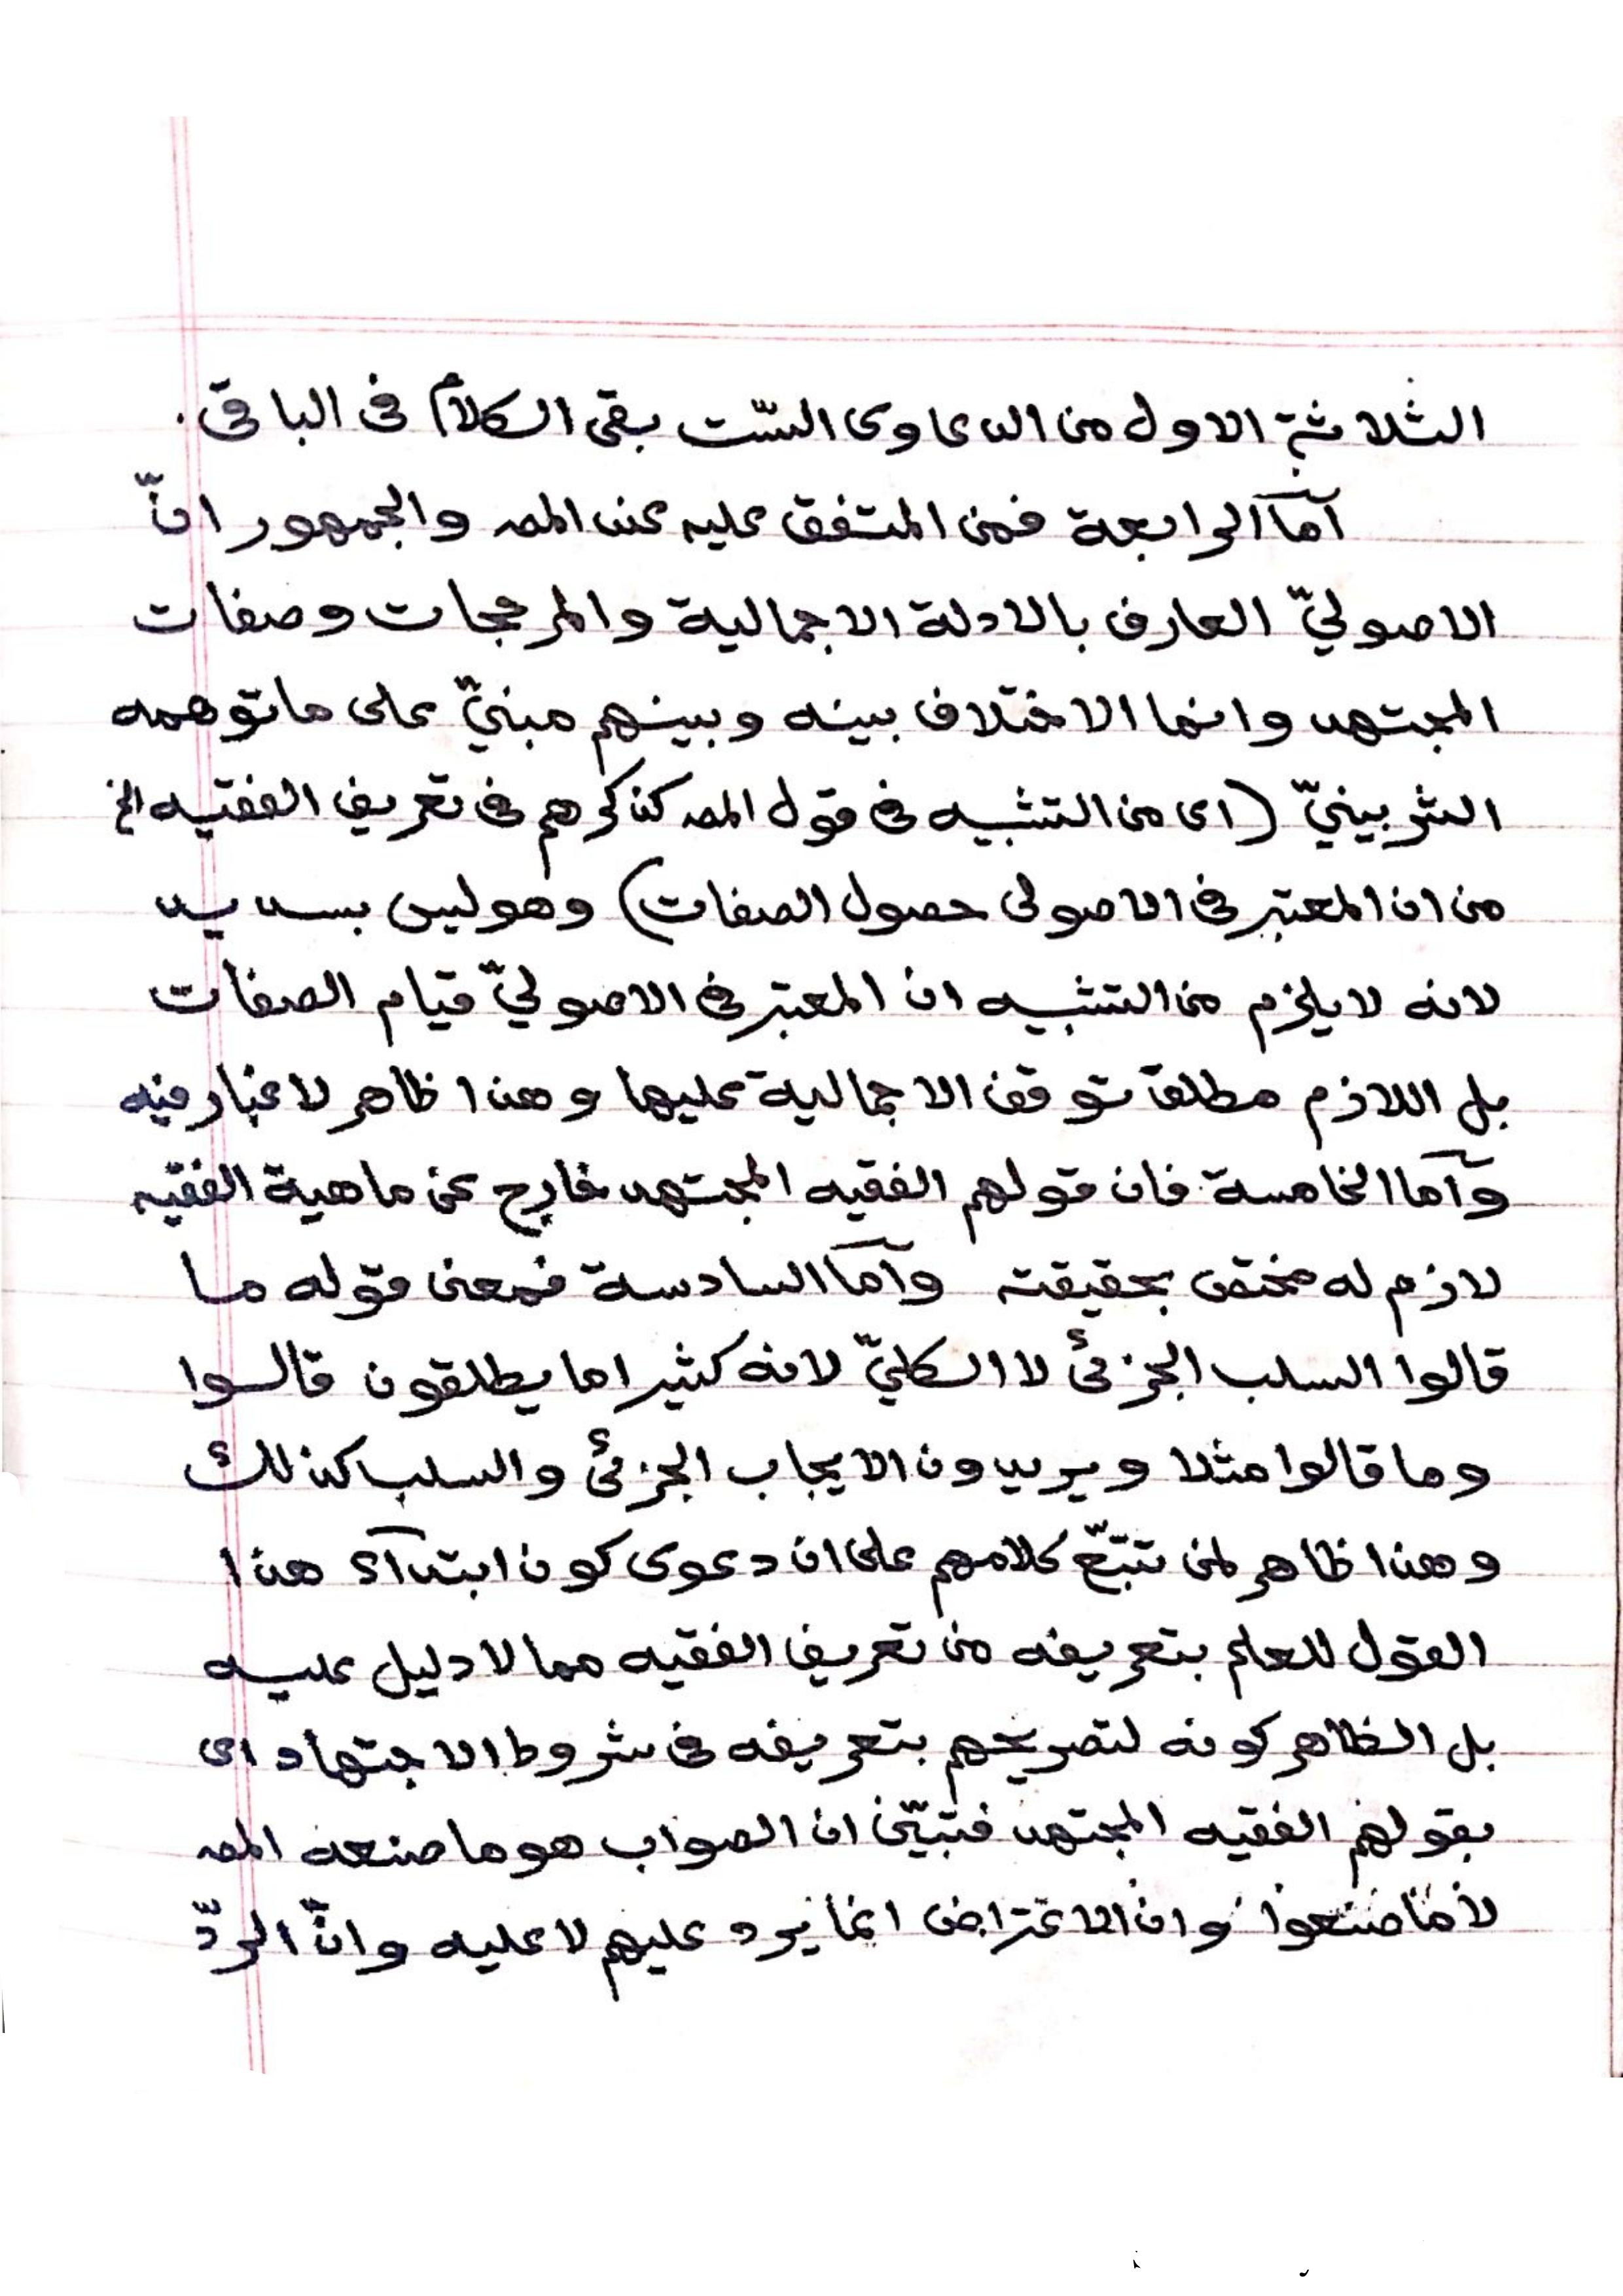 الثلاثة الاول من الدعاوى الستّ بقى الكلام فى الباقى .
آما الرابعة فمن المتفق عليه عند المصـ والجمهور انّ
الاصوليّ العارف بالادلة الاجمالية والمرجحات وصفات
المجتهد وانما الاختلاف بينه وبينهم مبنيّ على ماتوهمه
الشربينيّ (اى من التشبيه فى قول المصـ كذكرهم فى تعريف الفقيه الخ
من ان المعتبر فى الاصولى حصول الصفات) وهو ليس بسديد
لانه لا يلزم من التشبيه ان المعتبر فى الاصوليّ قيام الصفات
بل اللازم مطلق توقف الاجمالية عليها وهذا ظاهر لا غبار فيه
وآما الخامسة فان قولهم الفقيه المجتهد خارج عن ماهية الفقيه
لازم له مختص بحقيقته وآما السادسة فمعنى قوله ما
قالوا السلب الجزئى لا الكليّ لانه كثيراما يطلقون قالوا
وما قالوا مثلا ويريدون الايجاب الجزئى والسلب كذلك
وهذا ظاهر لمن تتبّع كلامهم على ان دعوى كون ابتدآء هذا
القول للعلم بتعريفه من تعريف الفقيه مما لا دليل عليه
بل الظاهر كونه لتصريحهم بتعريفه فى شروط الاجتهاد اى
بقولهم الفقيه المجتهد فتبيّن ان الصواب هو ما صنعه المصـ
لا ما صنعوا وان الاعتراض انما يرد عليهم لا عليه وانّ الردّ